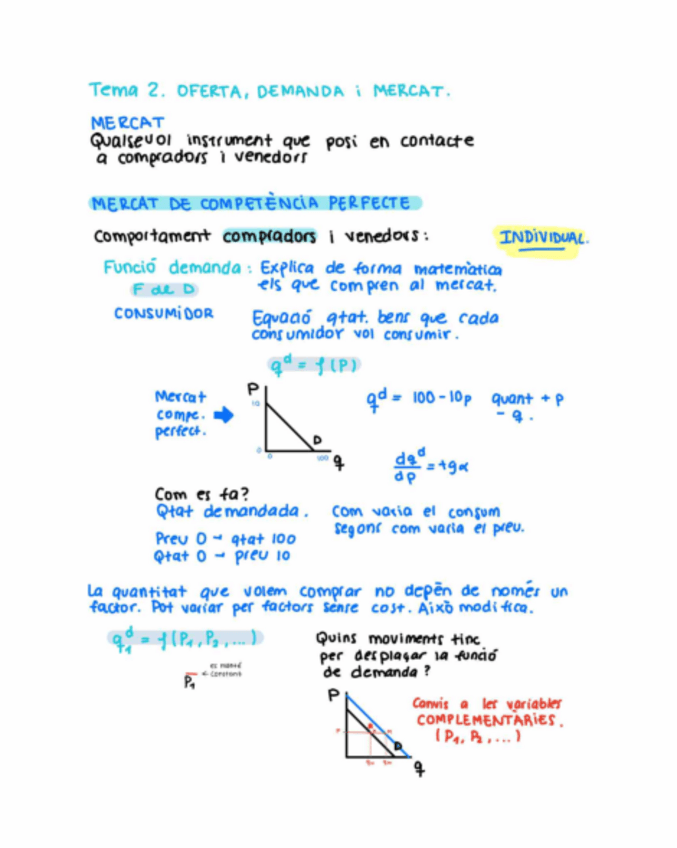 Tema 2. OFERTA, DEMANDA i MERCAT.
MERCAT
Qualsevol instrument que posi en contacte
a compradors i venedors
MERCAT DE COMPETÈNCIA PERFECTE
Comportament compradors i venedors:
INDIVIDUAL.
Funció demanda: Explica de forma matemàtica
F de D
els que compren al mercat.
CONSUMIDOR
Equació qtat. bens que cada
consumidor vol consumir.
q^d = f(P)
Mercat
compe.
perfect.
P
10
0
0
100
D
q
q^d = 100 - 10p quant + p
- q.
dq^d/dp = tgα
Com es fa?
Qtat demandada.
Preu 0 → qtat 100
Qtat 0 → preu 10
Com varia el consum
segons com varia el preu.
La quantitat que volem comprar no depèn de només un
factor. Pot variar per factors sense cost. Això modifica.
q₁^d = f(P₁, P₂, ...)
P₁ ← es manté
constant
Quins moviments tinc
per desplaçar la funció
de demanda?
P
D
q
Canvis a les variables
COMPLEMENTÀRIES.
(P₁, P₂, ...)